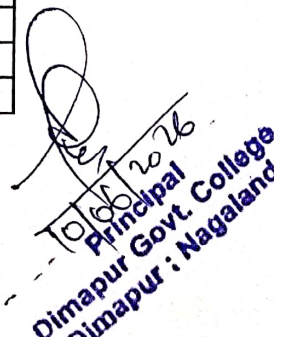 10/06/2026
Principal
Dimapur Govt. College
Dimapur : Nagaland